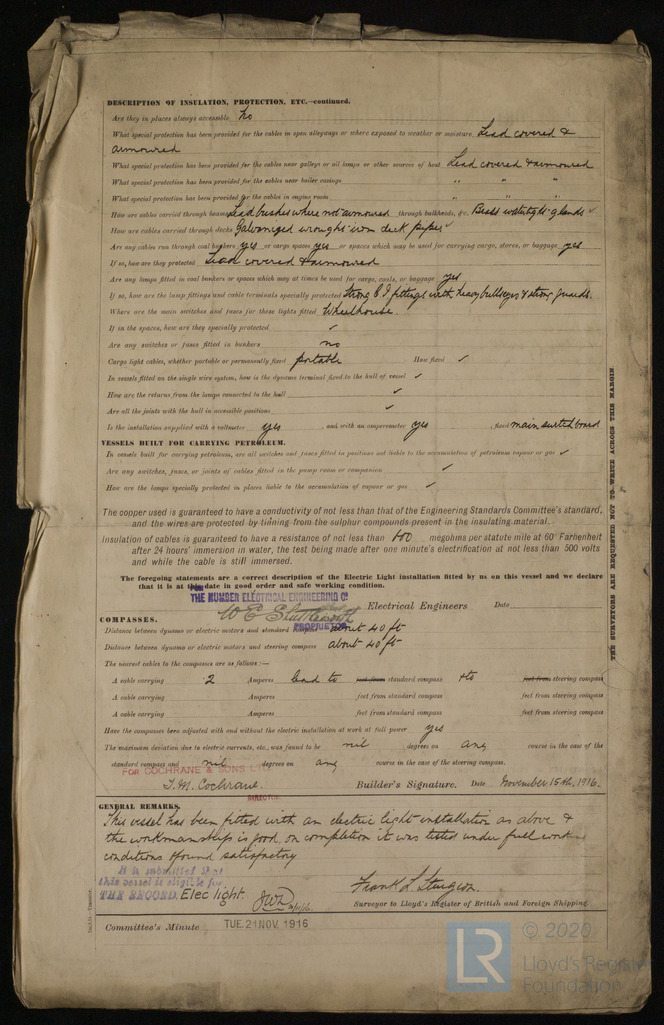 DESCRIPTION OF INSULATION, PROTECTION, ETC.—continued.
Are they in places always accessible no
What special protection has been provided for the cables in open alleyways or where exposed to weather or moisture Lead covered &
armoured
What special protection has been provided for the cables near galleys or oil lamps or other sources of heat Lead covered & armoured
What special protection has been provided for the cables near boiler casings " " "
What special protection has been provided for the cables in engine room " " "
How are cables carried through beams Lead bushes where not armoured through bulkheads, &c. Brass watertight glands ✓
How are cables carried through decks Galvanized wrought iron deck pipes ✓
Are any cables run through coal bunkers yes or cargo spaces yes or spaces which may be used for carrying cargo, stores, or baggage yes
If so, how are they protected Lead covered & armoured
Are any lamps fitted in coal bunkers or spaces which may at times be used for cargo, coals, or baggage yes
If so, how are the lamp fittings and cable terminals specially protected Strong C.I fittings with heavy bullseyes & strong guards.
Where are the main switches and fuses for these lights fitted Wheelhouse.
If in the spaces, how are they specially protected ✓
Are any switches or fuses fitted in bunkers no
Cargo light cables, whether portable or permanently fixed portable How fixed ✓
In vessels fitted on the single wire system, how is the dynamo terminal fixed to the hull of vessel ✓
How are the returns from the lamps connected to the hull ✓
Are all the joints with the hull in accessible positions ✓
Is the installation supplied with a voltmeter yes , and with an amperemeter yes , fixed main switchboard
VESSELS BUILT FOR CARRYING PETROLEUM.
In vessels built for carrying petroleum, are all switches and fuses fitted in positions not liable to the accumulation of petroleum vapour or gas ✓
Are any switches, fuses, or joints of cables fitted in the pump room or companion ✓
How are the lamps specially protected in places liable to the accumulation of vapour or gas ✓
The copper used is guaranteed to have a conductivity of not less than that of the Engineering Standards Committee's standard,
and the wires are protected by tinning from the sulphur compounds present in the insulating material.
Insulation of cables is guaranteed to have a resistance of not less than 600 megohms per statute mile at 60° Farhenheit
after 24 hours' immersion in water, the test being made after one minute's electrification at not less than 500 volts
and while the cable is still immersed.
The foregoing statements are a correct description of the Electric Light installation fitted by us on this vessel and we declare
that it is at this date in good order and safe working condition.
THE HUMBER ELECTRICAL ENGINEERING Co
W E Shuttleworth Electrical Engineers Date
PROPRIETOR
COMPASSES.
Distance between dynamo or electric motors and standard compass about 40 ft
Distance between dynamo or electric motors and steering compass about 40 ft
The nearest cables to the compasses are as follows:—
A cable carrying 2 Amperes lead to feet from standard compass & to feet from steering compass
A cable carrying Amperes feet from standard compass feet from steering compass
A cable carrying Amperes feet from standard compass feet from steering compass
Have the compasses been adjusted with and without the electric installation at work at full power yes
The maximum deviation due to electric currents, etc., was found to be nil degrees on any course in the case of the
standard compass and nil degrees on any course in the case of the steering compass.
FOR COCHRANE & SONS LTD
T.M. Cochrane. Builder's Signature. Date November 15th, 1916.
DIRECTOR
GENERAL REMARKS.
This vessel has been fitted with an electric light installation as above &
the workmanship is good, on completion it was tested under full working
conditions & found satisfactory
It is submitted that
this vessel is eligible for
THE RECORD. Elec light.
Frank L Sturgeon.
Surveyor to Lloyd's Register of British and Foreign Shipping
Committee's Minute TUE. 21 NOV. 1916
THE SURVEYORS ARE REQUESTED NOT TO WRITE ACROSS THIS MARGIN.
LR © 2020
Lloyd's Register
Foundation